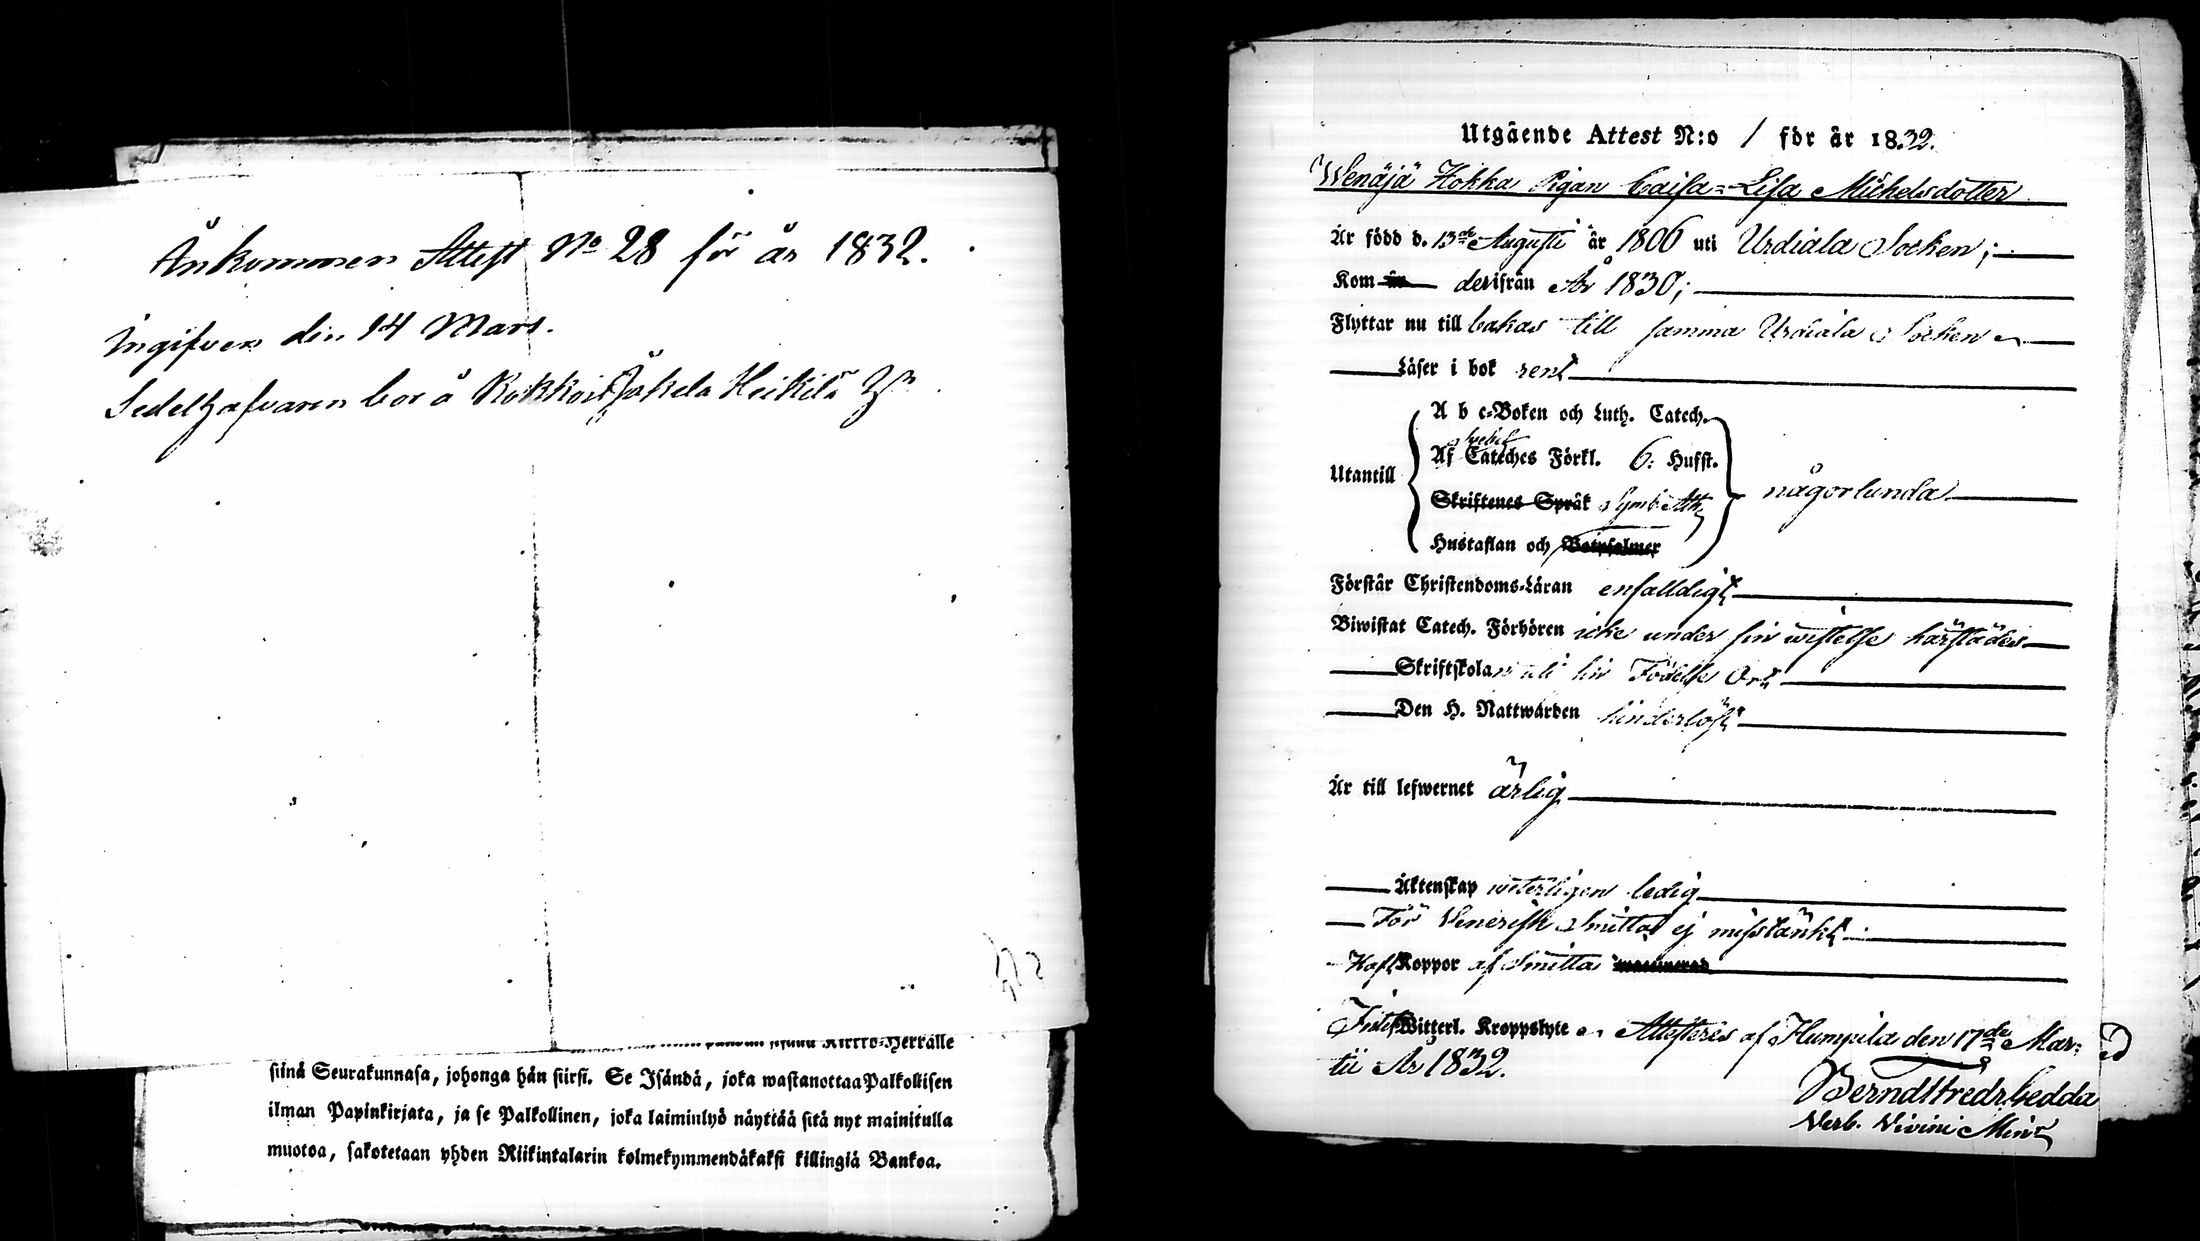 Ankommen Attest No 28 för år 1832.
Ingifven din 14 Mars.
Sedelhafvaren bor å Heikilä
Kirkko-Herralle
siinä Seurakunnasa, johonga hän siirsi. Se Isändä, joka wastanottaa Palkollisen
ilman Papinkirjata, ja se Palkollinen, joka laiminlyö näyttää sitä nyt mainitulla
muotoa, sakotetaan yhden Riikintalarin kolmekymmendäkaksi killingiä Bankoa.
Utgående Attest N:o 1 för år 1832.
Wenäjä Hokka Pigan Caisa-Lisa Michelsdotter
Är född d. 13de Augusti år 1806 uti Urdiala Socken;
Kom in derifrån År 1830;
Flyttar nu till bakas till samma Urdiala Socken
Läser i bok rent
A b c-Boken och Luth. Catech.
Af Catechés Förkl. 6: Hufst.
Utantill
någorlunda
Skriftenes Språk Symb: Ath:
Hustaflan och Botpsalmer
Förstår Christendoms-Läran enfalldigt
Biwistat Catech. Förhören icke under sin wistelse härstädes
Skriftskolan uti sin Födelse Ort
Den H. Nattwarden hinderlöst
Är till lefwernet ärlig
Äktenskap weterligen ledig
För Venerisk Smitta ej misstänkt
Haft Koppor af Smitta vaccinerad
Witterl. Kroppslyte Attesteres af Humpila den 17de Mar-
tii År 1832.
Berndt Fredr Cedda
Verb. Divini Minr